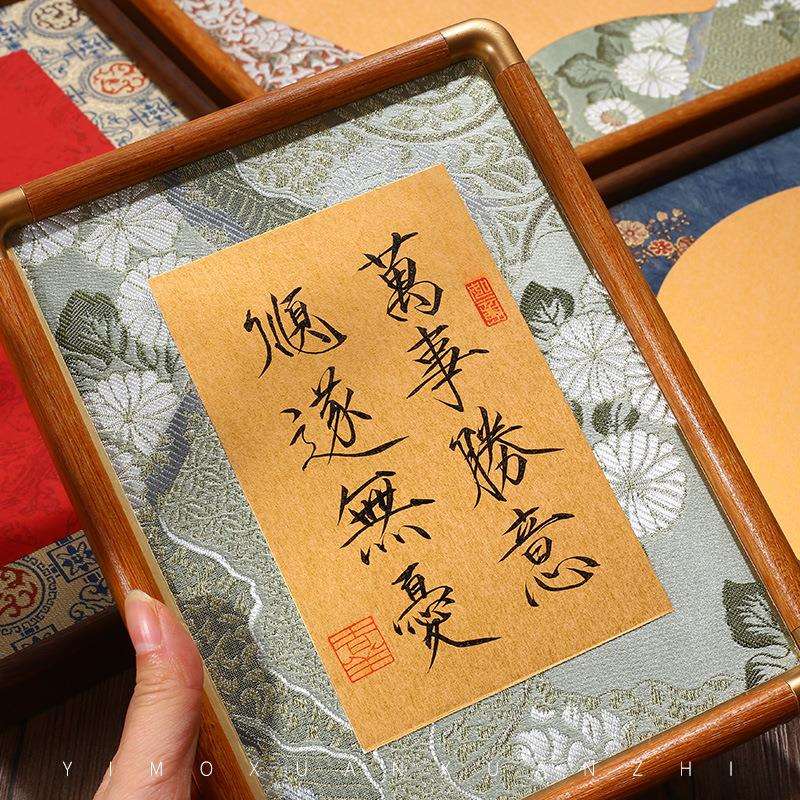 萬事勝意
順遂無憂
YIMOXUANXUANZHI